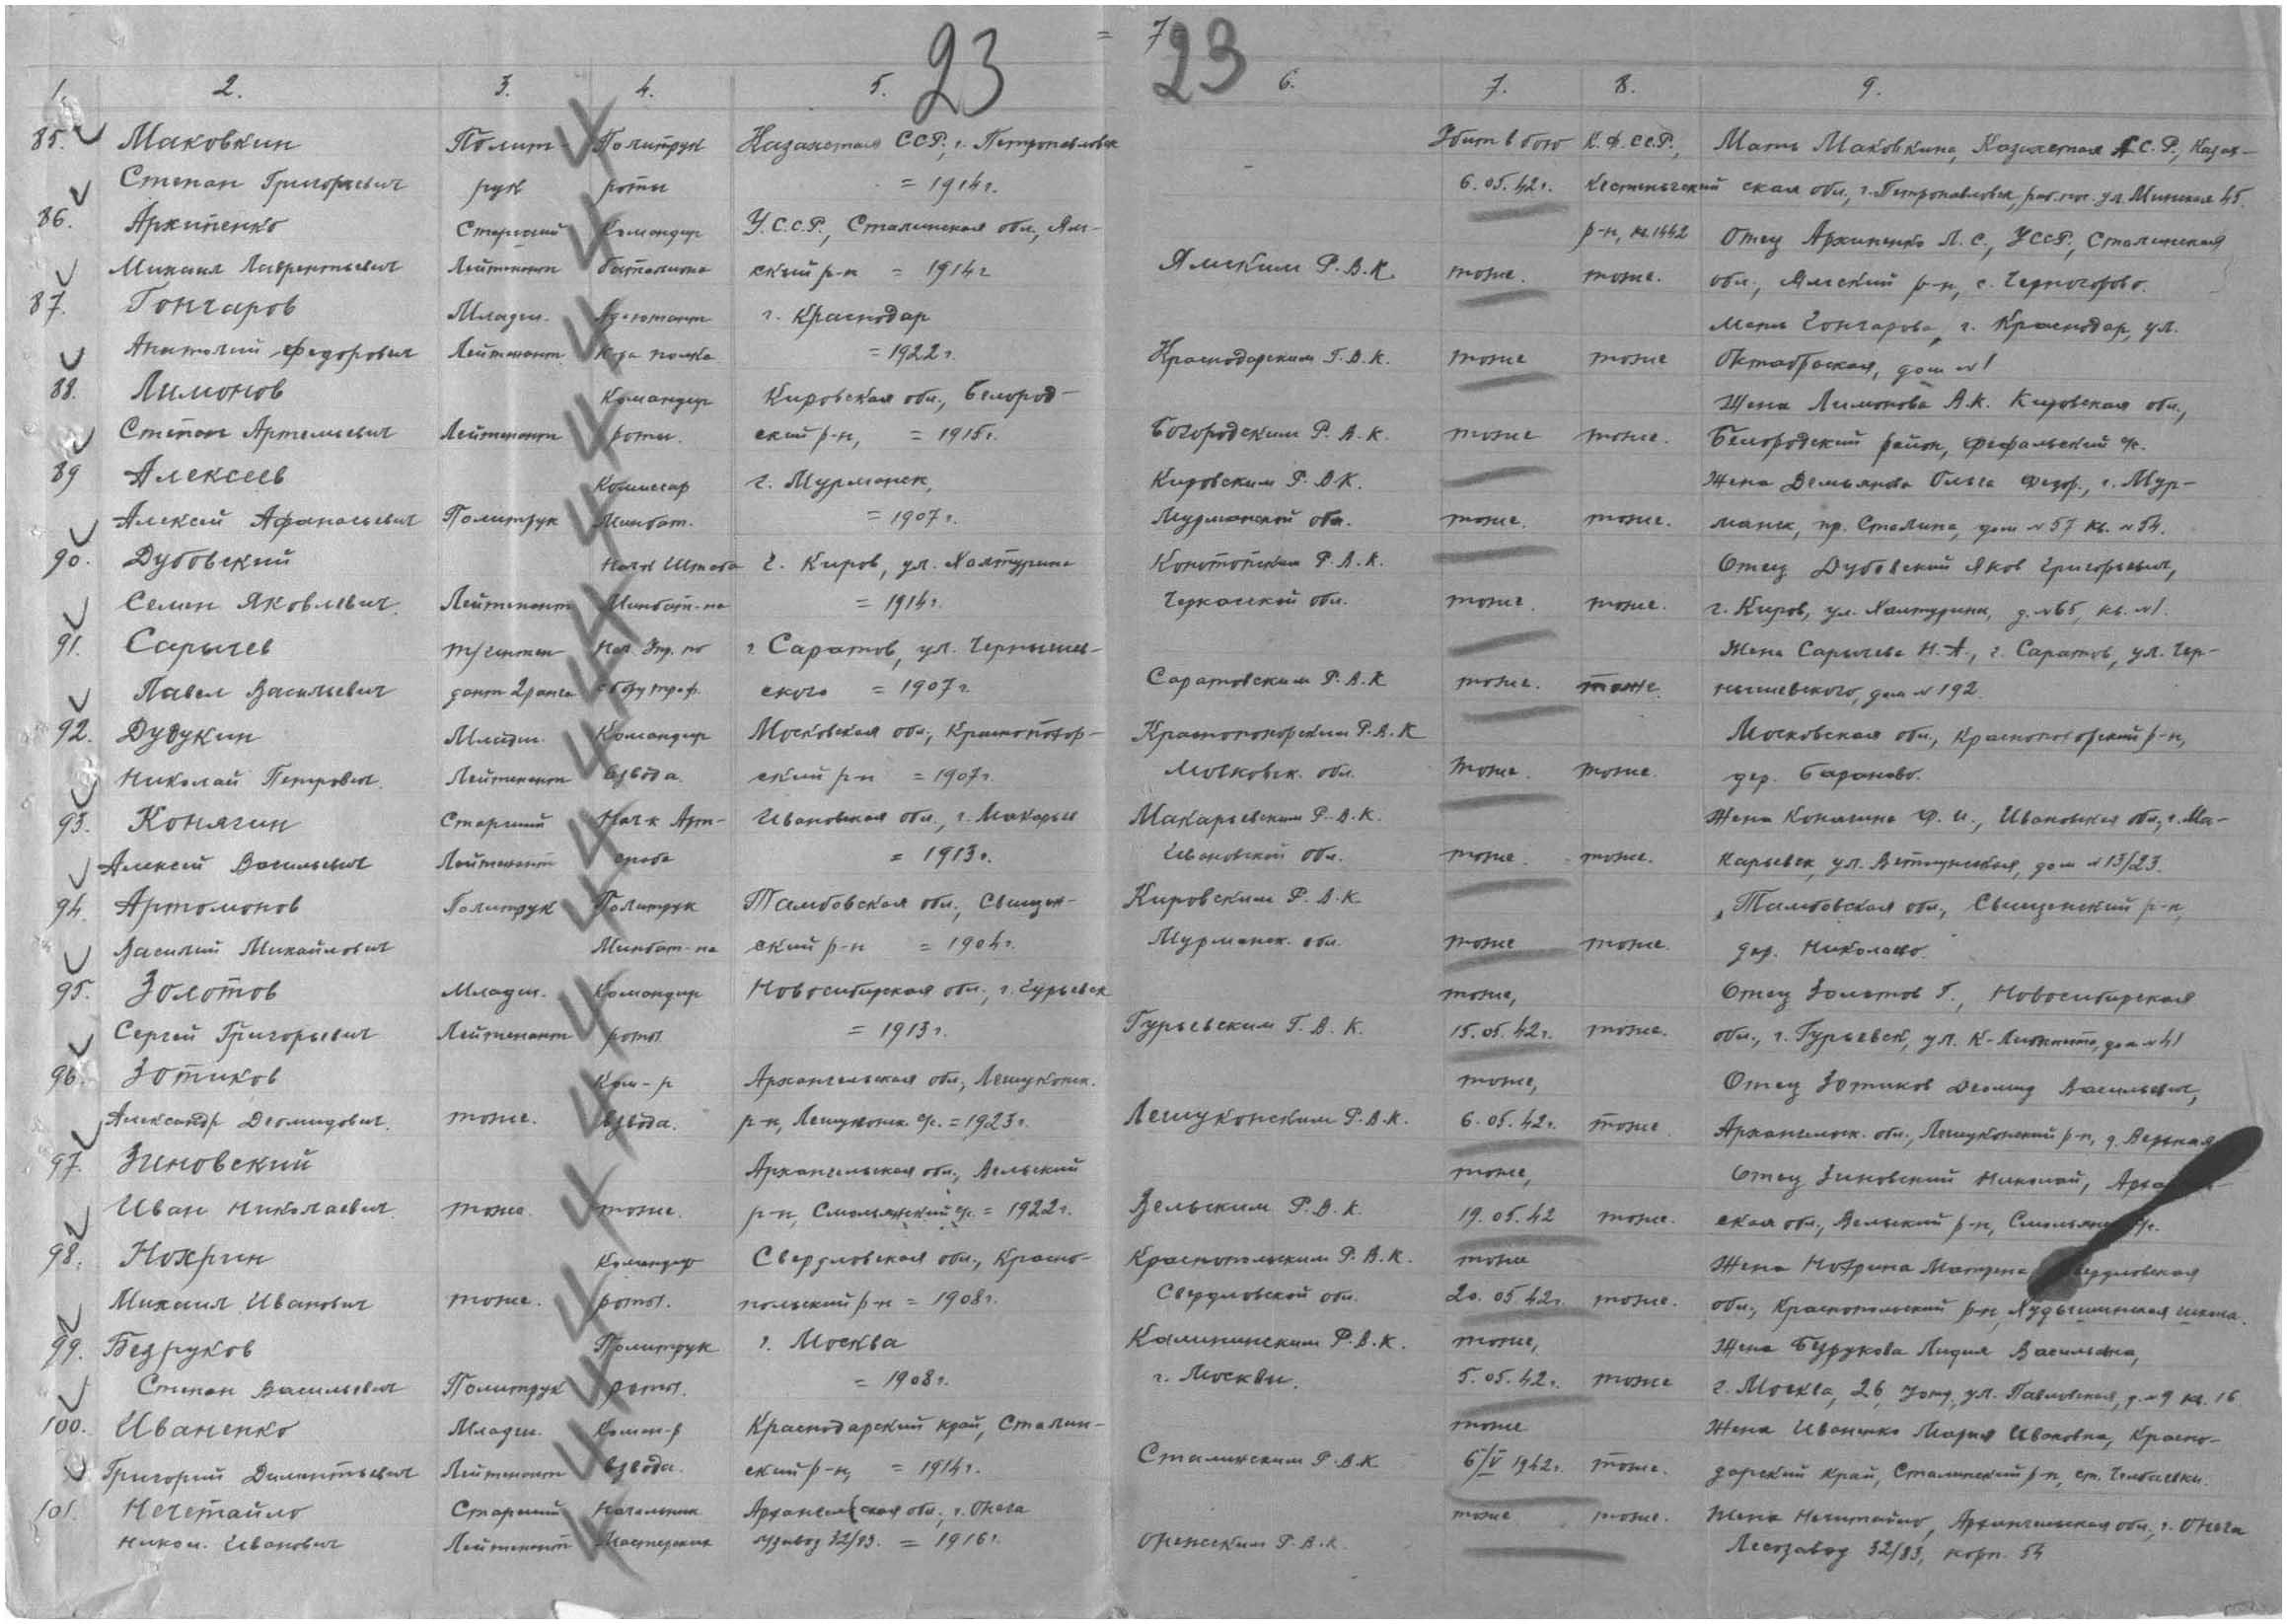 = 7
23 23
1. 2. 3. 4. 5. 6. 7. 8. 9.
85. Маковкин Полит- Политрук Казахстая ССР, г. Петропавловск Убит в бою К.Ф.ССР, Мать Маковкина, Казахстая С.Р., Казах-
Степан Григорьевич рук роты = 1914 г. - 6.05.42 г. Кестеньгский ская обл., г. Петропавловск, ул. Минская 45.
86. Архипенко Старший Командир У.С.С.Р., Сталинская обл., Ям- р-н, 1442 Отец Архипенко Л.С., УССР, Сталинская
Михаил Лаврентьевич Лейтенант батальона ский р-н = 1914 г Ямским Р.В.К. тоже. тоже. обл., Ямский р-н, с. Черногорово.
87. Гончаров Младш. Адъютант г. Краснодар Мать Гончарова, г. Краснодар, ул.
Анатолий Федорович Лейтенант К-ра полка = 1922 г. Краснодарским Г.В.К. тоже тоже Октябрьская, дом № 1
88. Лимонов Командир Кировская обл., Белород- Жена Лимонова А.К. Кировская обл.,
Степан Артемьевич Лейтенант роты. ский р-н, = 1915 г. Богородским Р.В.К. тоже тоже. Белородский район,
89 Алексеев Комиссар г. Мурманск, Кировским Р.В.К. Жена Демьянова Ольга Федор., г. Мур-
Алексей Афанасьевич Политрук Минбат. = 1907 г. Мурманской обл. тоже. тоже. манск, пр. Сталина, дом № 57 кв. № 54.
90. Дубовский Нач-к Штаба г. Киров, ул. Халтурина Конотопским Р.В.К. Отец Дубовский Яков Григорьевич,
Семен Яковлевич Лейтенант Минбат-на = 1914 г. Черкасской обл. тоже. тоже. г. Киров, ул. Халтурина, д. № 65, кв. № 1.
91. Сарычев т/интен Нач. по г. Саратов, ул. Чернышев- Жена Сарычева Н.А., г. Саратов, ул. Чер-
Павел Васильевич дант 2 ранга сбору троф. ского = 1907 г. Саратовским Р.В.К тоже. тоже. нышевского, дом № 192.
92. Дудукин Младш. Командир Московская обл., Краснопохор- Краснопохорским Р.В.К Московская обл., Краснопохорский р-н,
Николай Петрович. Лейтенант взвода. ский р-н = 1907 г. Московск. обл. тоже. тоже. дер. Бараново.
93. Конягин Старший Нач-к Арт- Ивановская обл., г. Макарьев Макарьевским Р.В.К. Жена Конягина Ф.И., Ивановская обл., г. Ма-
Алексей Васильевич Лейтенант снаба = 1913 г. Ивановской обл. тоже. тоже. карьевск, ул. дом № 13/23.
94. Артомонов Политрук Политрук Тамбовская обл., Свищен- Кировским Р.В.К Тамбовская обл., Свищенский р-н,
Василий Михайлович Минбат-на ский р-н = 1904 г. Мурманск. обл. тоже тоже. дер. Николаево.
95. Золотов Младш. Командир Новосибирская обл., г. Гурьевск тоже, Отец Золотов Г., Новосибирская
Сергей Григорьевич Лейтенант роты. = 1913 г. Гурьевским Г.В.К. 15.05.42 г. тоже. обл., г. Гурьевск, ул. К-Либкнехта, дом № 41
96. Зотиков Ком-р Архангельская обл., Лешуконск. тоже, Отец Зотиков Деомид Васильевич,
Александр Деомидович. тоже. взвода. р-н, Лешуконск. с/с. = 1923 г. Лешуконским Р.В.К. 6.05.42 г. тоже Архангельск. обл., Лешуконский р-н, д.
97. Зиновский Архангельская обл., Вельский тоже, Отец Зиновский Николай,
Иван Николаевич тоже. тоже. р-н, Смольянский с/с. = 1922 г. Вельским Р.В.К. 19.05.42 тоже. ская обл., Вельский р-н,
98. Нохрин Командир Свердловская обл., Красно- Краснопольским Р.В.К. тоже Жена Нохрина Матрена
Михаил Иванович тоже. роты. польский р-н = 1908 г. Свердловской обл. 20.05.42 г. тоже. обл., Краснопольский р-н, школа.
99. Безруков Политрук г. Москва Калининским Р.В.К. тоже, Жена Безрукова Лидия Васильевна,
Степан Васильевич Политрук роты. = 1908 г. г. Москвы. 5.05.42 г. тоже г. Москва, 26, ул. Павловская, д. № 9 кв. 16
100. Иваненко Младш. Коман-р Краснодарский край, Сталин- тоже Жена Иваненко Мария Ивановна, Красно-
Григорий Дементьевич Лейтенант взвода. ский р-н, = 1914 г. Сталинским Р.В.К 6/V 1942 г. тоже. дарский край, Сталинский р-н, ст. Челбаевка.
101. Нечетайло Старший Начальник Архангельская обл., г. Онега тоже тоже. Жена Нечитайло, Архангельская обл., г. Онега
Никол. Иванович Лейтенант Мастерских 32/83. = 1916 г. Онежским Р.В.К. Лесозавод 32/83, корп. 54